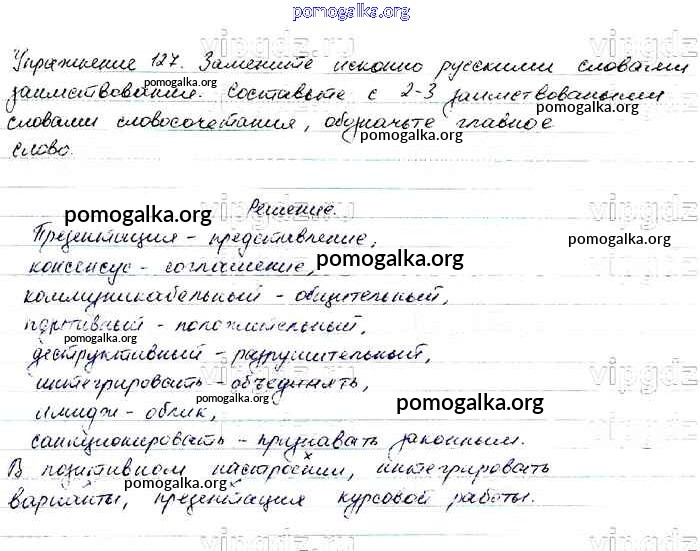 pomogalka.org
Упражнение 127. Замените исконно русскими словами
pomogalka.org
заимствования. Составьте с 2-3 заимствованными
pomogalka.org
словами словосочетания, обозначьте главное
pomogalka.org
слово.
vipgdz.ru
Решение.
pomogalka.org
Презентация - представление,
pomogalka.org
консенсус - соглашение,
pomogalka.org
коммуникабельный - общительный,
позитивный - положительный,
pomogalka.org
деструктивный - разрушительный,
vipgdz
интегрировать - объединять,
pomogalka.org
имидж - облик,
pomogalka.org
санкционировать - признавать законным.
В позитивном настроении, интегрировать
x
варианты, презентация курсовой работы.
pomogalka.org